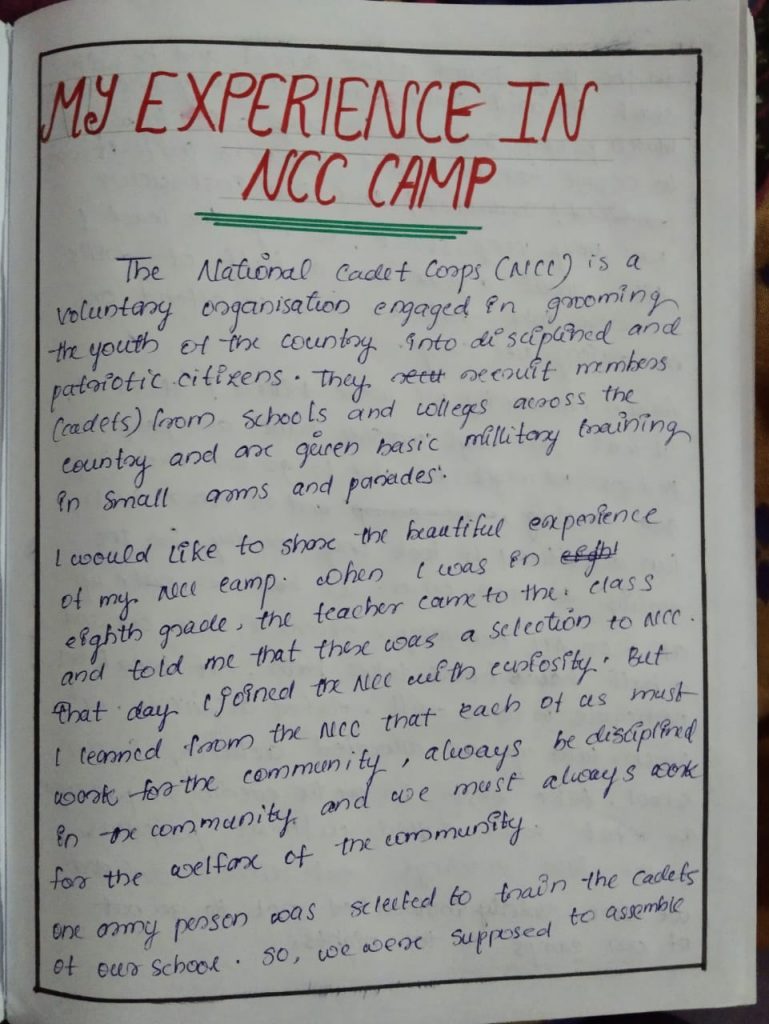 MY EXPERIENCE IN
NCC CAMP
The National Cadet Corps (NCC) is a
voluntary organisation engaged in grooming
the youth of the country into disciplined and
patriotic citizens. They recruit members
(cadets) from schools and colleges across the
country and are given basic millitary training
in small arms and parades.
I would like to share the beautiful experience
of my NCC camp. When I was in eight
eighth grade, the teacher came to the class
and told me that there was a selection to NCC.
That day I joined the NCC with curiosity. But
I learned from the NCC that each of us must
work for the community, always be disciplined
in the community and we must always work
for the welfare of the community.
one army person was selected to train the cadets
of our school. So, we were supposed to assemble